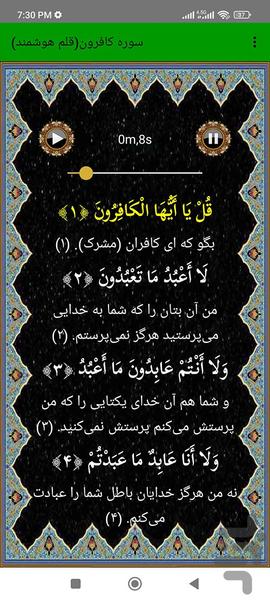 7:30 PM
سوره کافرون(قلم هوشمند)
0m,8s
قُلْ يَا أَيُّهَا الْكَافِرُونَ ﴿۱﴾
بگو که ای کافران (مشرک). (۱)
لَا أَعْبُدُ مَا تَعْبُدُونَ ﴿۲﴾
من آن بتان را که شما به خدایی
می‌پرستید هرگز نمی‌پرستم. (۲)
وَلَا أَنْتُمْ عَابِدُونَ مَا أَعْبُدُ ﴿۳﴾
و شما هم آن خدای یکتایی را که من
پرستش می‌کنم پرستش نمی‌کنید. (۳)
وَلَا أَنَا عَابِدٌ مَا عَبَدْتُمْ ﴿۴﴾
نه من هرگز خدایان باطل شما را عبادت
می‌کنم. (۴)